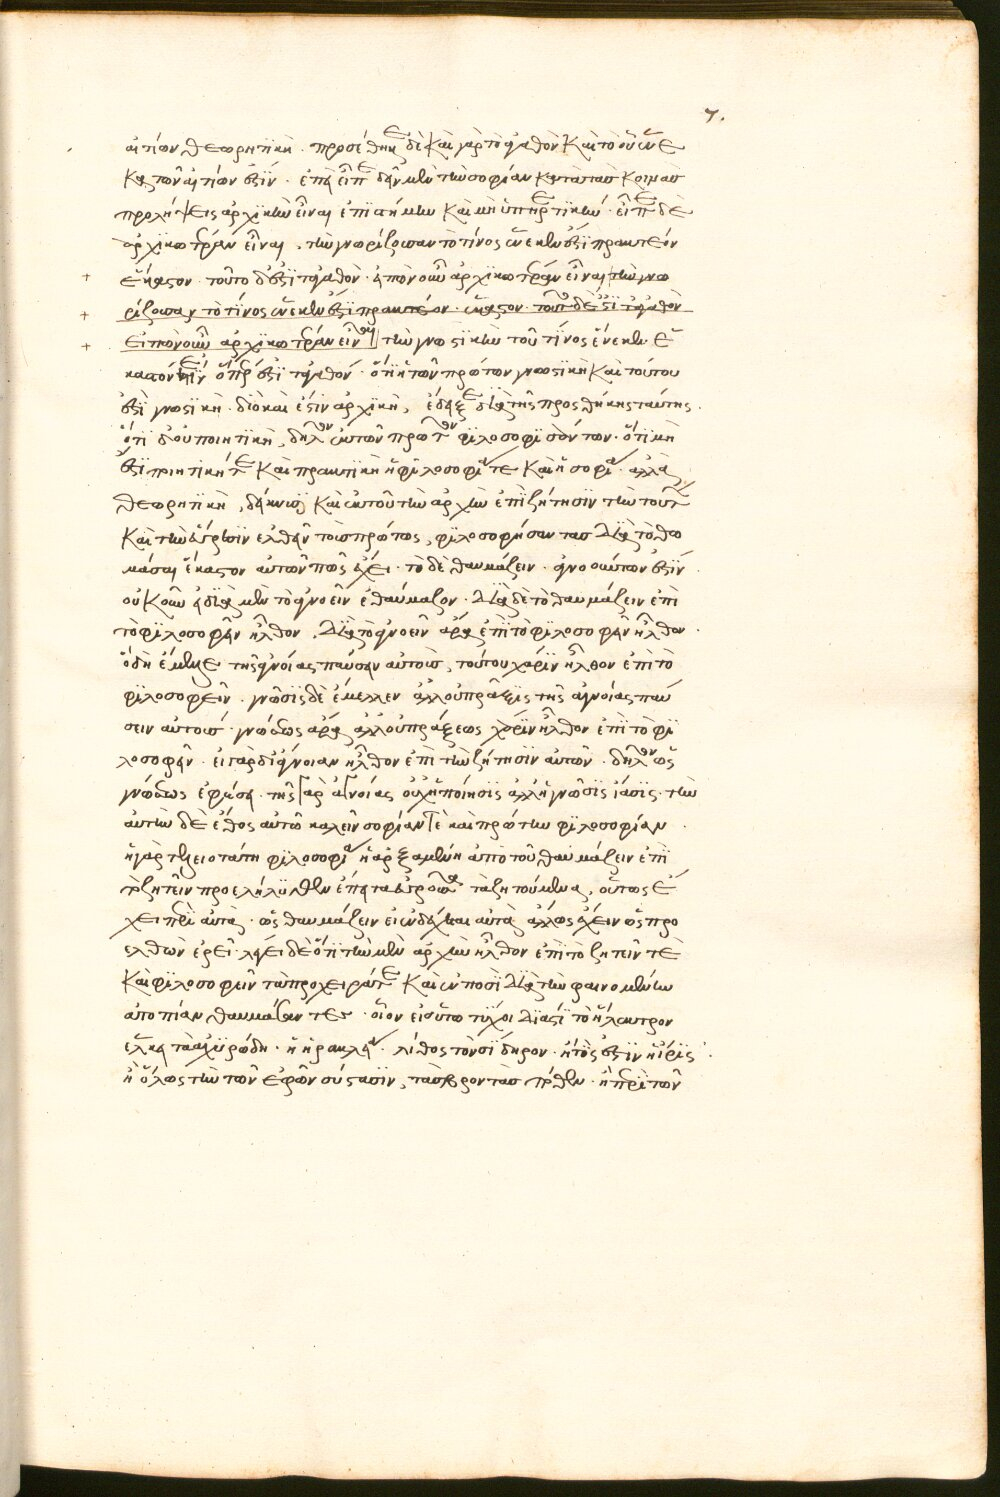 7.
αἰτιῶν θεωρητικὴ · προσέθηκε δὲ καὶ γὰρ τὸ ἀγαθὸν καὶ τὸ οὗ ἕνε
κα τῶν αἰτιῶν ἐστίν · ἐπεὶ εἶπε δεῖν μὲν τὴν σοφίαν κατὰ τὰς κοινὰς
προλήψεις ἀρχικὴν εἶναι ἐπιστήμην καὶ μὴ ὑπηρετικήν · εἶπε δὲ
ἀρχικωτέραν εἶναι, τὴν γνωρίζουσαν τὸ τίνος ἕνεκέν ἐστι πρακτέον
ἕκαστον · τοῦτο δ' ἐστὶ τἀγαθόν · εἰπὼν οὖν ἀρχικωτέραν εἶναι τὴν γνω
ρίζουσαν τὸ τίνος ἕνεκέν ἐστι πρακτέον · ἕκαστον · τοῦτο δέ ἐστι τἀγαθὸν
εἰπὼν οὖν ἀρχικωτέραν εἶναι τὴν γνωστικὴν τοῦ τίνος ἕνεκεν ἕ
καστόν ἐστιν ὅπερ ἐστὶ τἀγαθόν · ὅτι ἡ τῶν πρώτων γνωστικὴ καὶ τούτου
ἐστὶ γνωστικὴ · διὸ καί ἐστιν ἀρχικὴ, ἔδειξε διὰ τῆς προσθήκης ταύτης ·
ὅτι δ' οὐ ποιητικὴ, δῆλον ἐκ τῶν πρῶτον φιλοσοφησόντων · ὅτι μὴ
ἐστὶ ποιητική τε καὶ πρακτικὴ ἡ φιλοσοφία τε καὶ ἡ σοφία · ἀλλὰ
θεωρητικὴ, δείκνυσι καὶ ἐκ τοῦ τὴν ἀρχὴν ἐπιζήτησιν τὴν τούτων
καὶ τὴν εὕρεσιν ἐλθεῖν τοῖς πρώτως, φιλοσοφήσαντας διὰ τὸ θαυ
μάσαι ἕκαστον αὐτῶν πῶς ἔχει · τὸ δὲ θαυμάζειν · ἀγνοούντων ἐστίν ·
οὐκοῦν εἰ διὰ μὲν τὸ ἀγνοεῖν ἐθαύμαζον · διὰ δὲ τὸ θαυμάζειν ἐπὶ
τὸ φιλοσοφεῖν ἦλθον, διὰ τὸ ἀγνοεῖν ἄρα ἐπὶ τὸ φιλοσοφεῖν ἦλθον ·
ὃ δὴ ἔμελλε τῆς ἀγνοίας παύσειν αὐτοὺς, τούτου χάριν ἦλθον ἐπὶ τὸ
φιλοσοφεῖν · γνῶσις δὲ ἔμελλεν ἀλλ' οὐ πρᾶξις τῆς ἀγνοίας παύ
σειν αὐτούς · γνώσεως ἄρα ἀλλ' οὐ πράξεως χάριν ἦλθον ἐπὶ τὸ φι
λοσοφεῖν · εἰ γὰρ δι' ἄγνοιαν ἦλθον ἐπὶ τὴν ζήτησιν αὐτῶν · δῆλον ὡς
γνώσεως ἐφιέσει · τῆς γὰρ ἀγνοίας οὐχ ἡ ποίησις ἀλλ' ἡ γνῶσις ἴασις · τὴν
αὐτὴν δὲ ἔθος αὐτῷ καλεῖν σοφίαν τε καὶ πρώτην φιλοσοφίαν ·
ἡ γὰρ τελειοτάτη φιλοσοφία ἡ ἀρξαμένη ἀπὸ τοῦ θαυμάζειν ἐπὶ
τὸ ζητεῖν προελήλυθεν ἔπειτα εὑροῦσα τὰ ζητούμενα, οὕτως ἔ
χει περὶ αὐτὰ · ὡς θαυμάζειν εἰ ἐνδέχεται αὐτὰ ἄλλως ἔχειν ὡς προ
ελθὼν ἐρεῖ · λέγει δὲ ὅτι τὴν μὲν ἀρχὴν ἦλθον ἐπὶ τὸ ζητεῖν τὲ
καὶ φιλοσοφεῖν τὰ πρόχειρά τε καὶ ἐν ποσὶ διὰ τὴν φαινομένην
ἀτοπίαν θαυμάσαντες · οἷον εἰ οὕτω τύχοι διὰ τί τὸ ἤλεκτρον
ἕλκει τὰ ἀχυρώδη · ἢ ἡρακλεία · λίθος τὸν σίδηρον · ἢ τίς ἐστιν ἡ ἶρις ·
ἢ ὅλως τὴν τῶν νεφῶν σύστασιν, τὰς βροντὰς πόθεν · ἢ περὶ τῶν